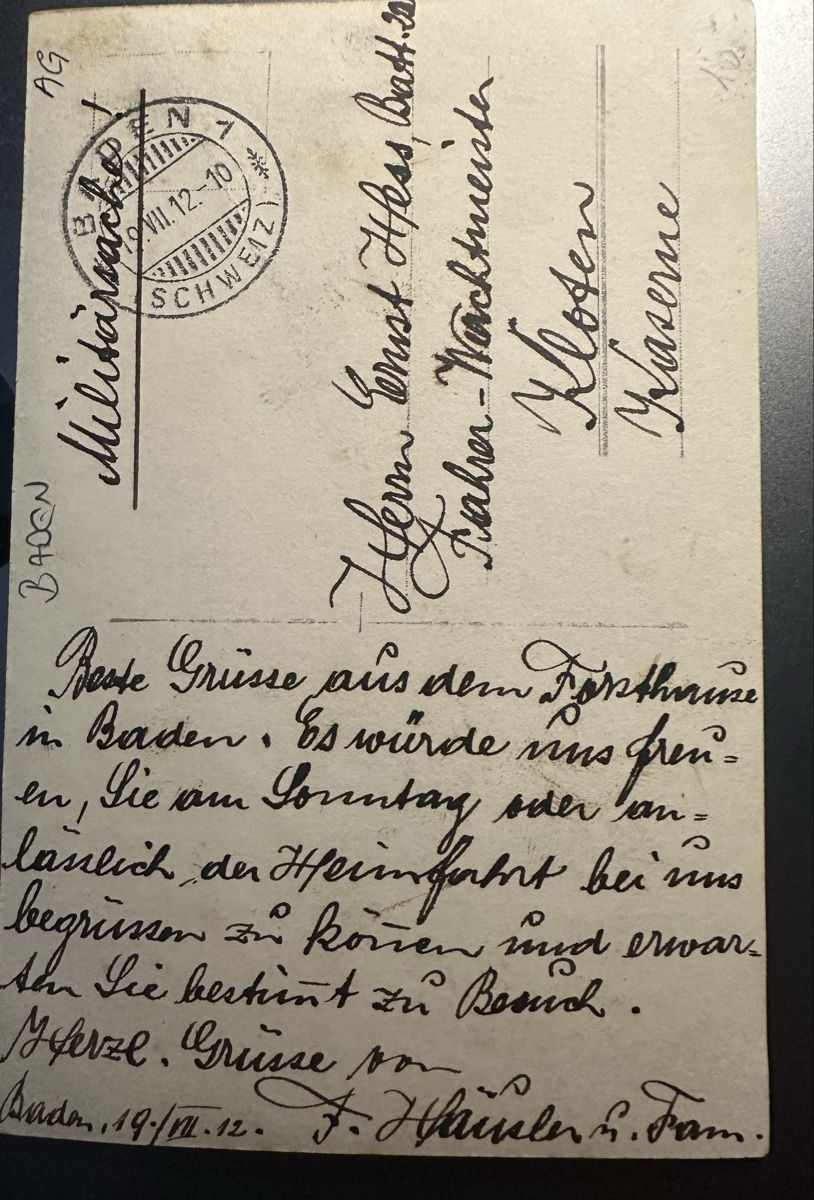 AG
BADEN
Militärsache!
BADEN 1
19.VII.12.-10
(SCHWEIZ)
Herrn Ernst Hess, Batt.
Fahrer-Wachtmeister
Kloten
Kaserne
Beste Grüsse aus dem Forsthause
in Baden. Es würde uns freu=
en, Sie am Sonntag oder an=
lässlich der Heimfahrt bei uns
begrüssen zu kön̄en und erwar=
ten Sie bestim̄t zu Besuch.
Herzl. Grüsse von
Baden, 19./VII.12. F. Häusler u. Fam.